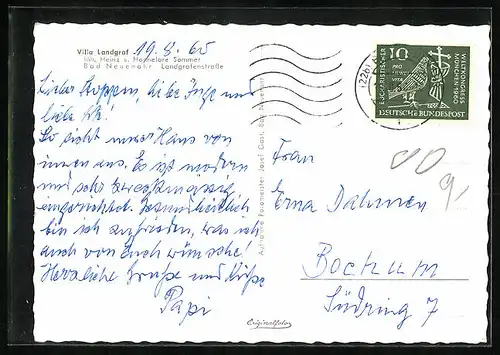 Villa Landgraf
Inh. Heinz u. Hannelore Sommer
Bad Neuenahr Landgrafenstraße
19.8.60
Liebe liebe Inge und
liebe
So sieht unser Haus von
innen aus. Es ist modern
und sehr zweckmässig
eingerichtet. Gesundheitlich
bin ich zufrieden, was ich
auch von Euch wünsche!
Herzliche Grüße und Küße
Papi
Aufnahme Fotomeister Josef Gast, Bad Neuenahr
Originalfoto
10
EUCHARISTISCHER
WELTKONGRESS
MÜNCHEN 1960
PRO
MUNDI
VITA
DEUTSCHE BUNDESPOST
(22b)
Frau
Erna Dahmen
Bochum
Südring 7